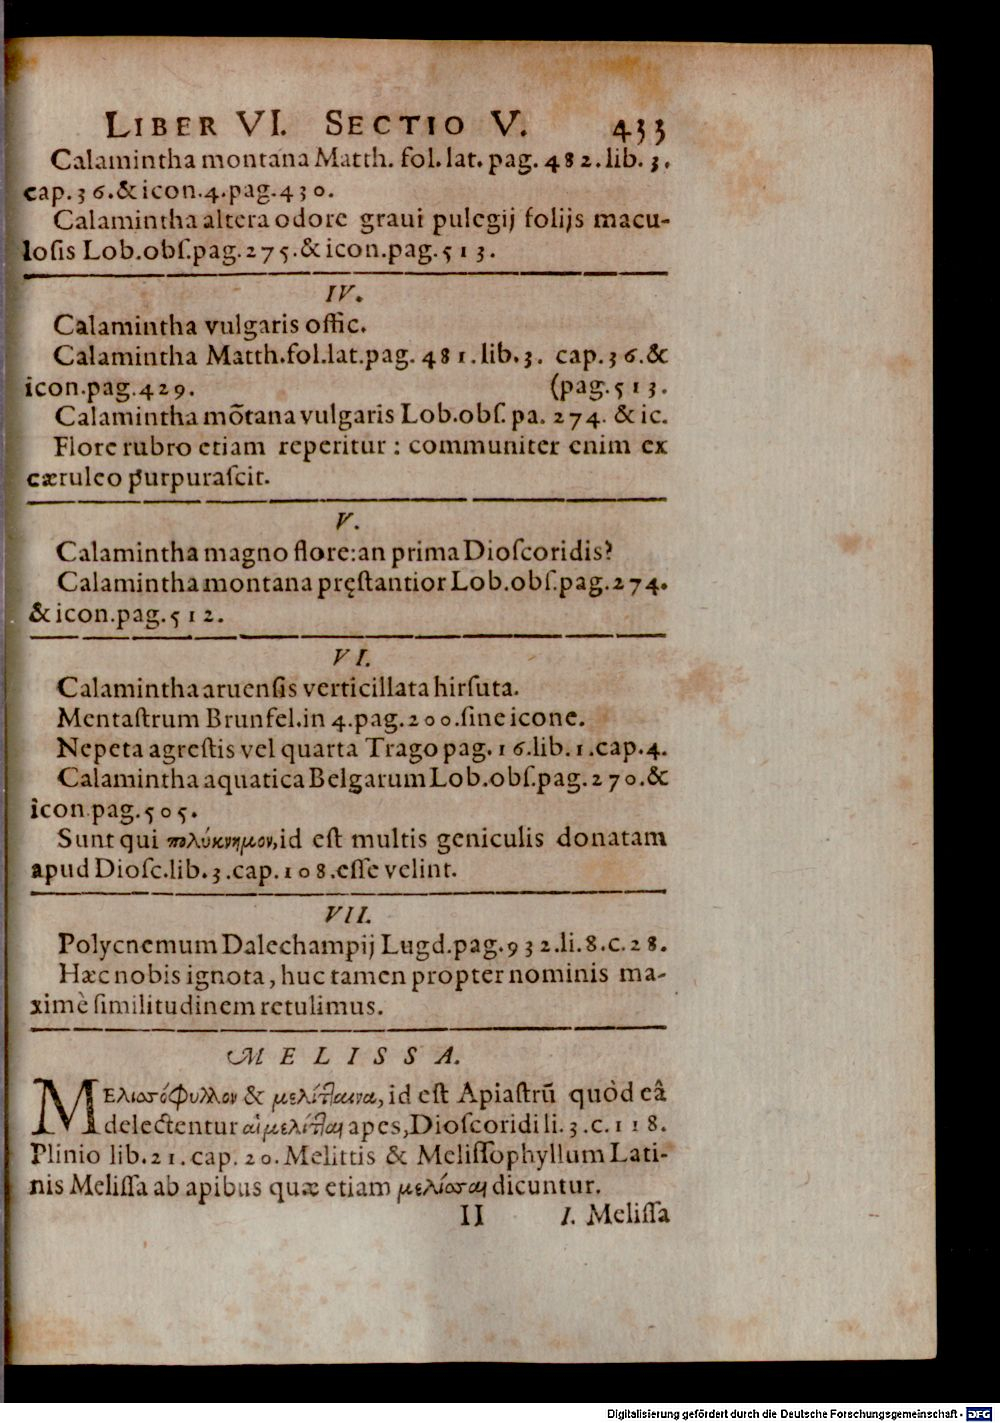 LIBER VI. SECTIO V. 433
Calamintha montana Matth. fol. lat. pag. 482. lib. 3.
cap. 36. & icon. 4. pag. 430.
Calamintha altera odore graui pulegij folijs macu-
losis Lob. obſ. pag. 275. & icon. pag. 513.
IV.
Calamintha vulgaris offic.
Calamintha Matth. fol. lat. pag. 481. lib. 3. cap. 36. &
icon. pag. 429. (pag. 513.
Calamintha mõtana vulgaris Lob. obſ. pa. 274. & ic.
Flore rubro etiam reperitur : communiter enim ex
cæruleo purpuraſcit.
V.
Calamintha magno flore: an prima Dioſcoridis?
Calamintha montana pręſtantior Lob. obſ. pag. 274.
& icon. pag. 512.
VI.
Calamintha aruenſis verticillata hirſuta.
Mentaſtrum Brunfel. in 4. pag. 200. ſine icone.
Nepeta agreſtis vel quarta Trago pag. 16. lib. 1. cap. 4.
Calamintha aquatica Belgarum Lob. obſ. pag. 270. &
icon. pag. 505.
Sunt qui πολύκνημον, id eſt multis geniculis donatam
apud Dioſc. lib. 3. cap. 108. eſſe velint.
VII.
Polycnemum Dalechampij Lugd. pag. 932. li. 8. c. 28.
Hæc nobis ignota, huc tamen propter nominis ma-
ximè ſimilitudinem retulimus.
MELISSA.
Μελισσόφυλλον & μελίτταινα, id eſt Apiaſtrũ quòd eâ
delectentur αἱ μελίτται apes, Dioſcoridi li. 3. c. 118.
Plinio lib. 21. cap. 20. Melittis & Meliſſophyllum Lati-
nis Meliſſa ab apibus quæ etiam μελίσσαι dicuntur.
II I. Meliſſa
Digitalisierung gefördert durch die Deutsche Forschungsgemeinschaft - DFG